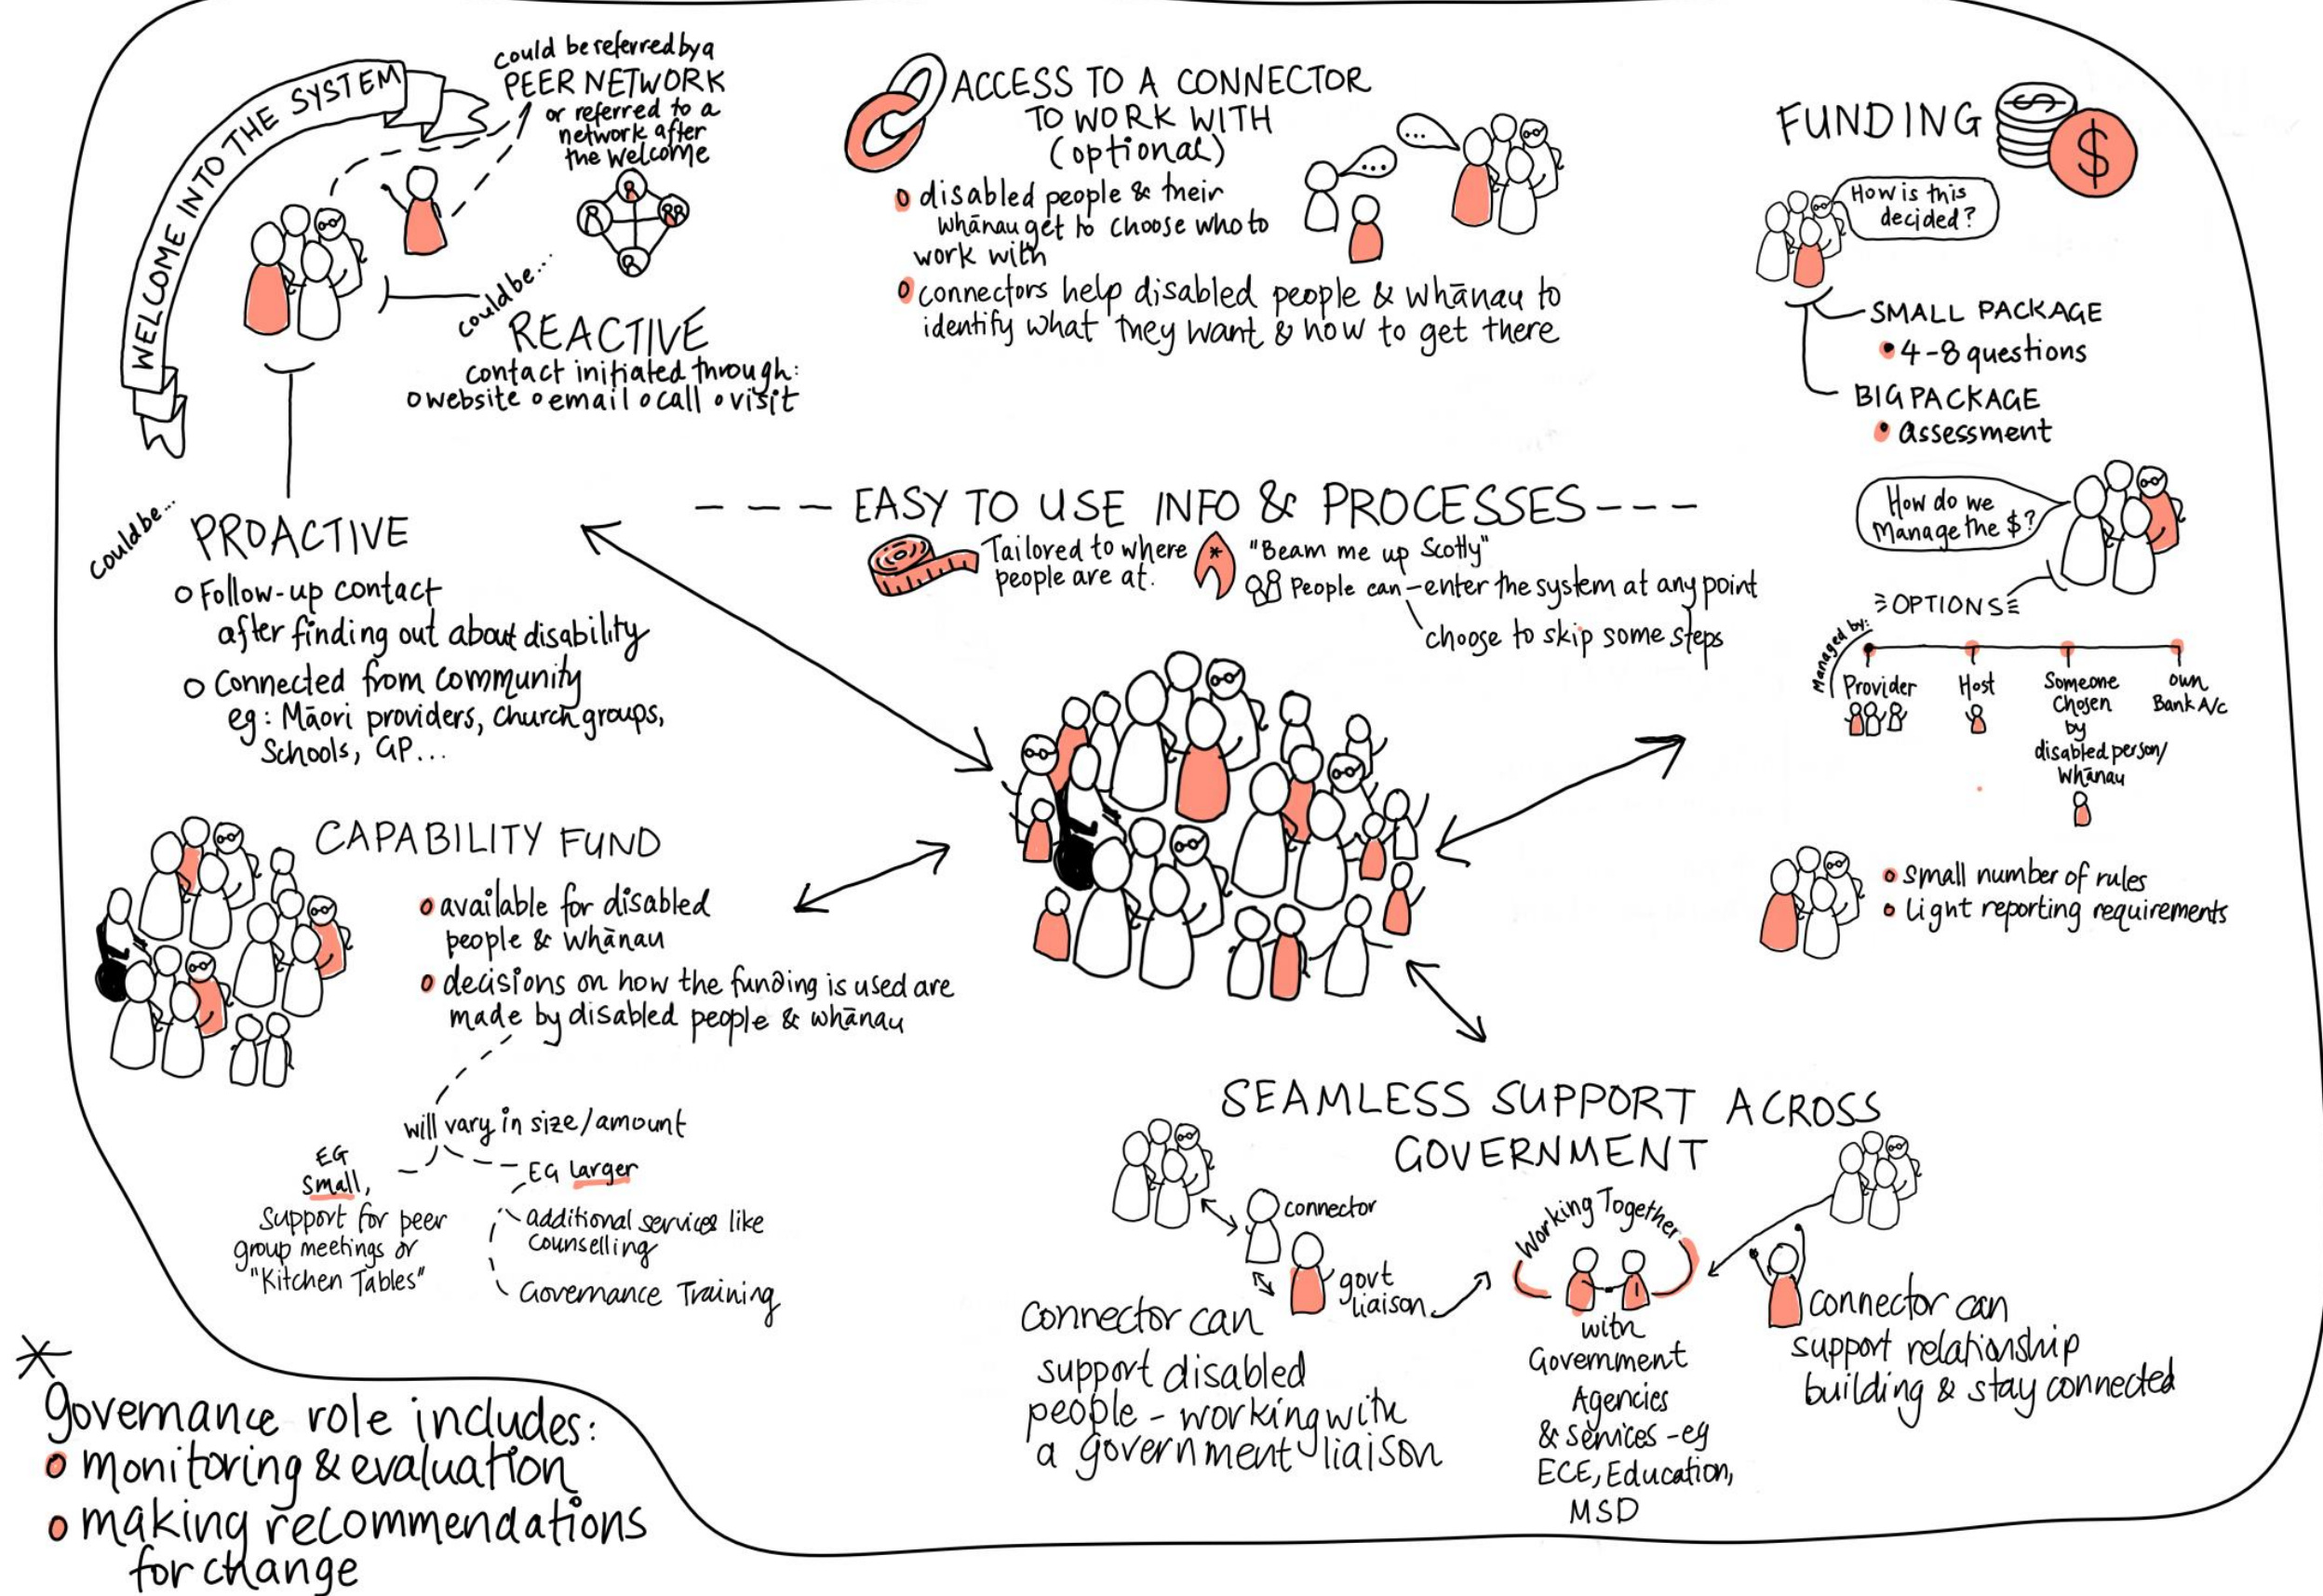 WELCOME INTO THE SYSTEM
could be referred by a
PEER NETWORK
or referred to a
network after
the welcome
could be...
REACTIVE
contact initiated through:
website email call visit
could be...
PROACTIVE
Follow-up contact
after finding out about disability
Connected from community
eg: Māori providers, church groups,
Schools, GP...
ACCESS TO A CONNECTOR
TO WORK WITH
(optional)
disabled people & their
whānau get to choose who to
work with
connectors help disabled people & whānau to
identify what they want & how to get there
...
...
FUNDING
$
$
How is this
decided?
SMALL PACKAGE
4-8 questions
BIG PACKAGE
assessment
How do we
Manage the $?
OPTIONS
Managed by:
Provider
Host
Someone
Chosen
by
disabled person/
whānau
own
Bank A/c
small number of rules
Light reporting requirements
--- EASY TO USE INFO & PROCESSES ---
Tailored to where
people are at.
"Beam me up Scotty"
People can - enter the system at any point
choose to skip some steps
CAPABILITY FUND
available for disabled
people & whānau
decisions on how the funding is used are
made by disabled people & whānau
will vary in size/amount
EG
small,
Support for peer
group meetings or
"Kitchen Tables"
EG larger
additional services like
counselling
Governance Training
SEAMLESS SUPPORT ACROSS
GOVERNMENT
connector
govt
liaison
Connector can
support disabled
people - working with
a government liaison
Working Together
with
Government
Agencies
& services - eg
ECE, Education,
MSD
connector can
support relationship
building & stay connected
*
governance role includes:
monitoring & evaluation
making recommendations
for change